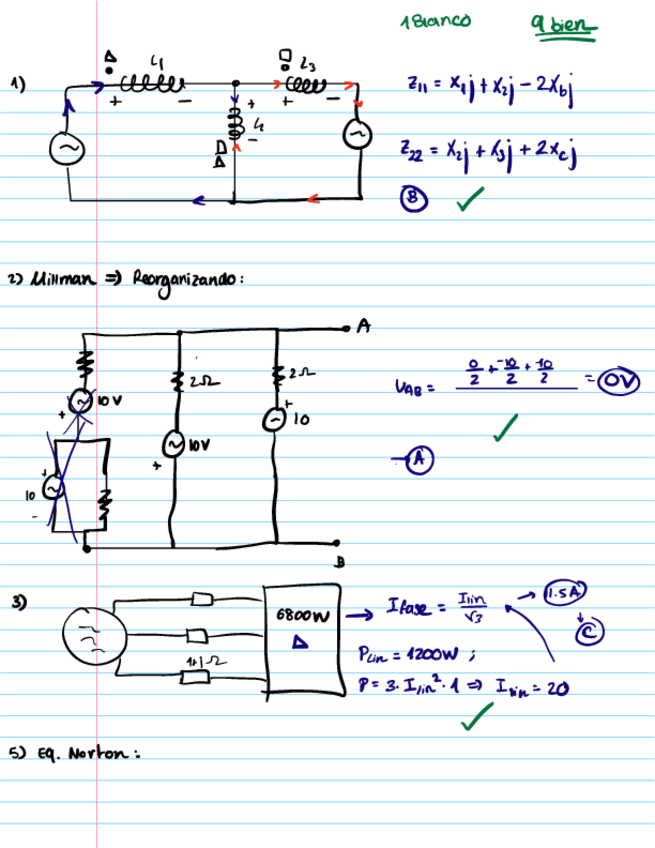 1 Blanco 9 bien
1)
Δ L1 □ L3
+ - + -
+ L2 -
□ Δ
Z11 = X1j + X2j - 2Xbj
Z22 = X2j + X3j + 2Xcj
B ✓
2) Millman => Reorganizando:
A
10V
+
10
+
-
2Ω
10V
+
2Ω
+
10
B
UAB = 0/2 + -10/2 + 10/2 = 0V
✓
→ A
3)
1+1Ω
6800W
Δ
→ Ifase = Ilin/√3 → 1.5A
↓ C
Plin = 1200W ;
P = 3· Ilin²· 1 => Ilin = 20
✓
5) Eq. Norton :